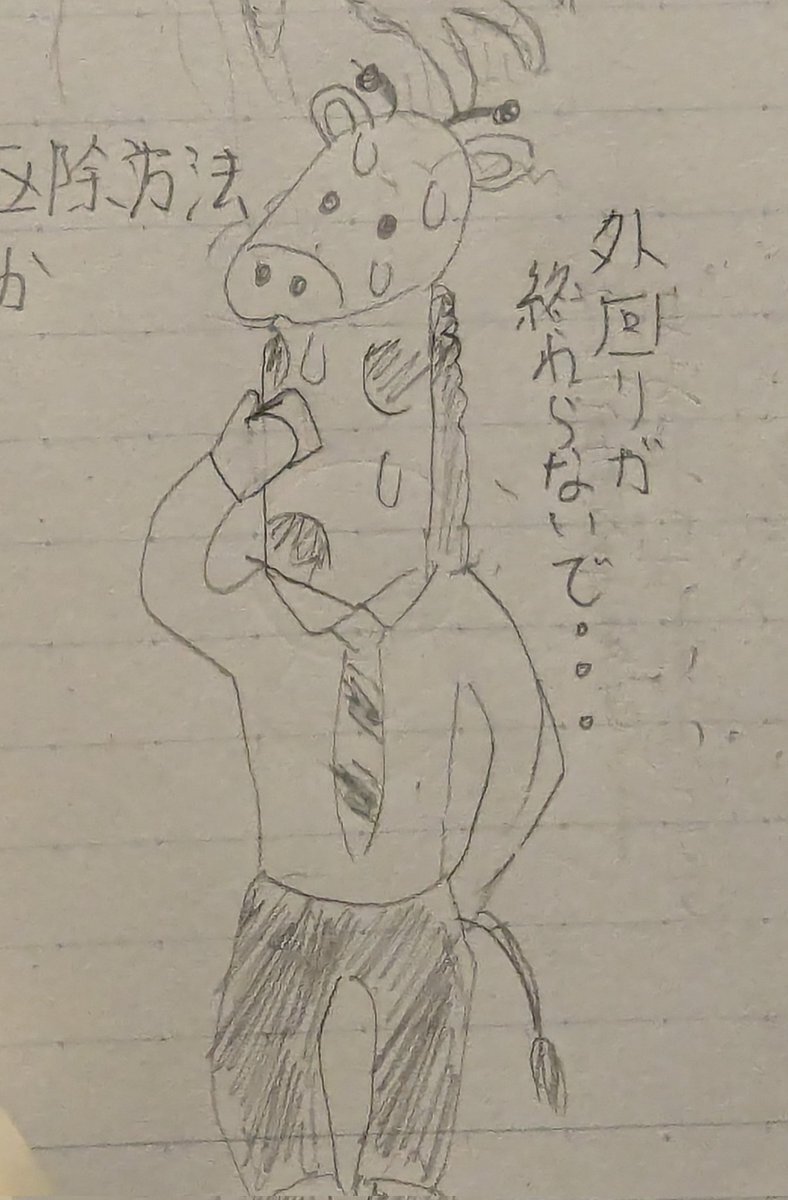 除方法
か
外回りが
終わらないで・・・